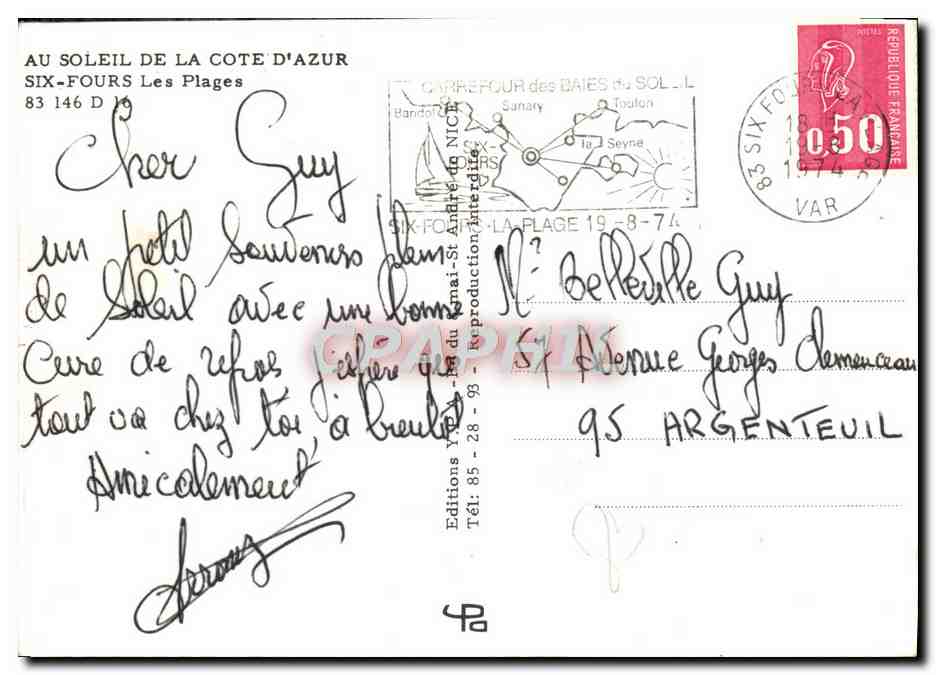 AU SOLEIL DE LA COTE D'AZUR
SIX-FOURS Les Plages
83 146 D 16
Cher Guy
un petit Souvenirs plein
de Soleil avec une bonne
Cure de repos j'espère que
tout va chez toi, à bientôt
Amicalement
CARREFOUR des BAIES du SOLEIL
Bandol
Sanary
Toulon
la Seyne
SIX-FOURS
SIX-FOURS-LA-PLAGE 19-8-74
83 SIX FOURS LA PLAGE
18 H
19-8
1974
VAR
POSTES
REPUBLIQUE FRANCAISE
0,50
Mr Belleville Guy
57 Avenue Georges Clemenceau
95 ARGENTEUIL
St André de NICE
Tél: 85 - 28 - 93 - Reproduction interdite
CPAPHIL